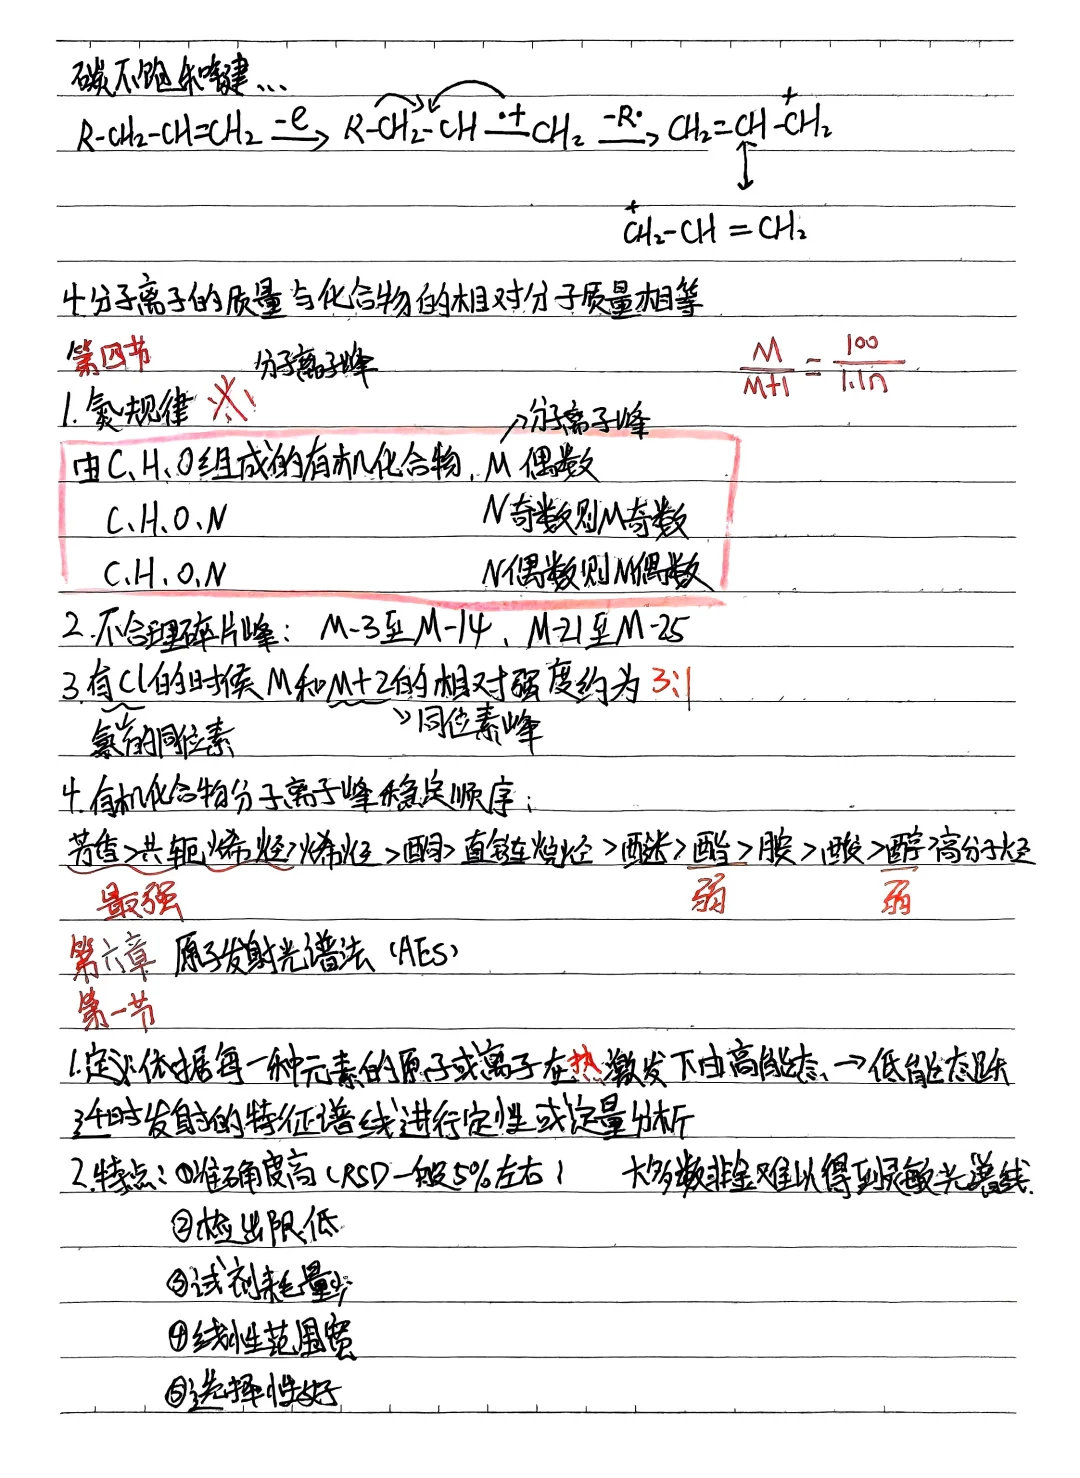 碳不饱和键...
R-CH₂-CH=CH₂ -e→ R-CH₂-CH ·+ CH₂ -R·→ CH₂=CH-CH₂ +
↕
+ CH₂-CH=CH₂
4.分子离子的质量与化合物的相对分子质量相等
第四节 分子离子峰 M/M+1 = 100/1.1n
1.氮规律 ※!
→分子离子峰
由C、H、O组成的有机化合物, M偶数
C、H、O、N N奇数则M奇数
C、H、O、N N偶数则M偶数
2.不合理碎片峰: M-3至M-14、M-21至M-25
3.有Cl的时候M和M+2的相对强度约为3:1
氯的同位素 →同位素峰
4.有机化合物分子离子峰稳定顺序:
芳香>共轭烯烃>烯烃>酮>直链烷烃>醚>酯>胺>酸>醇>高分子烃
最强 弱 弱
第六章 原子发射光谱法(AES)
第一节
1.定义:依据每一种元素的原子或离子在热激发下由高能态→低能态跃
迁时发射的特征谱线进行定性或定量分析
2.特点:①准确度高(RSD一般5%左右) 大多数非金难以得到灵敏光谱线.
②检出限低
③试剂耗量少
④线性范围宽
⑤选择性好